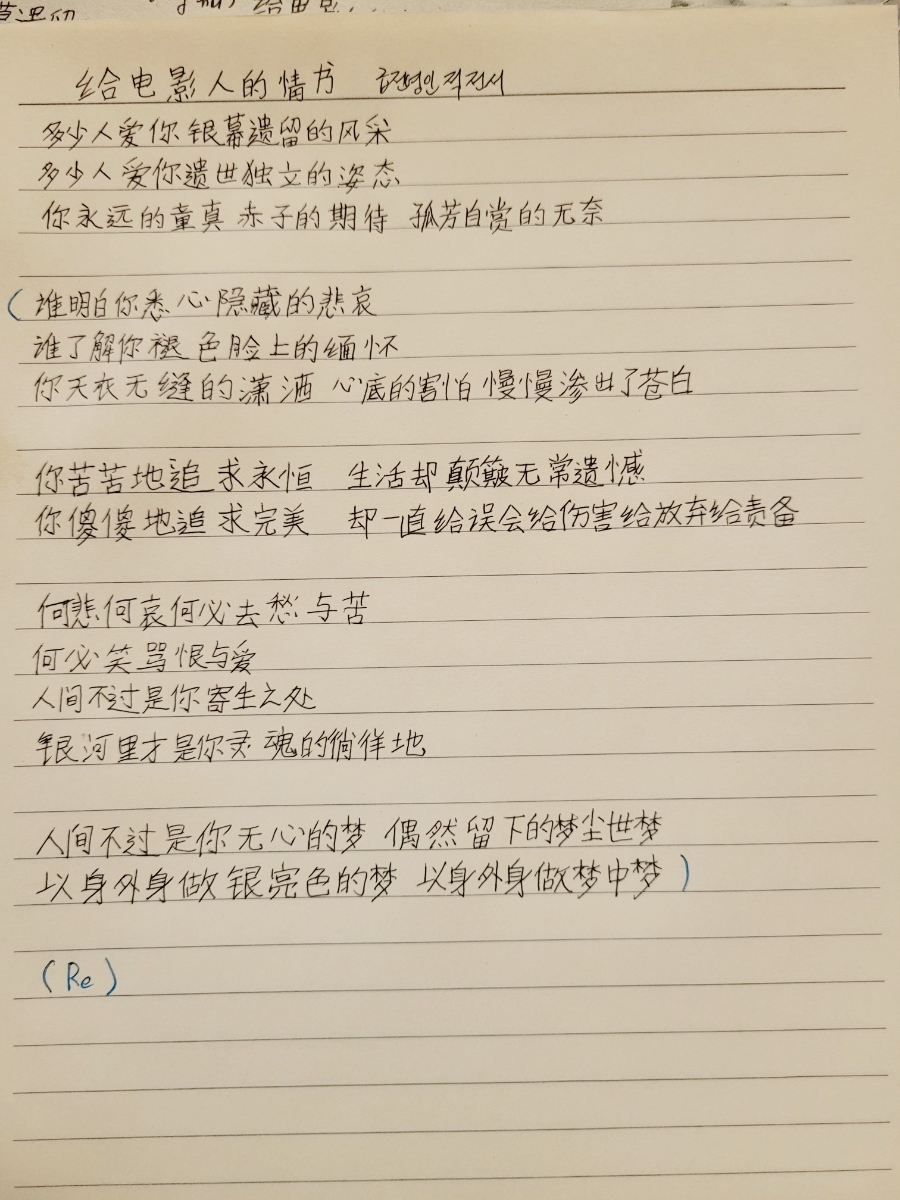 给电影人的情书 급전영인적전서
多少人爱你 银幕遗留的风采
多少人爱你遗世独立的姿态
你永远的童真 赤子的期待 孤芳自赏的无奈
(谁明白你悉心隐藏的悲哀
谁了解你褪色脸上的缅怀
你天衣无缝的潇洒 心底的害怕 慢慢渗出了苍白
你苦苦地追求永恒 生活却颠簸无常遗憾
你傻傻地追求完美 却一直给误会给伤害给放弃给责备
何悲何哀何必去愁与苦
何必笑骂恨与爱
人间不过是你寄生之处
银河里才是你灵魂的徜徉地
人间不过是你无心的梦 偶然留下的梦尘世梦
以身外身做银亮色的梦 以身外身做梦中梦)
(Re)